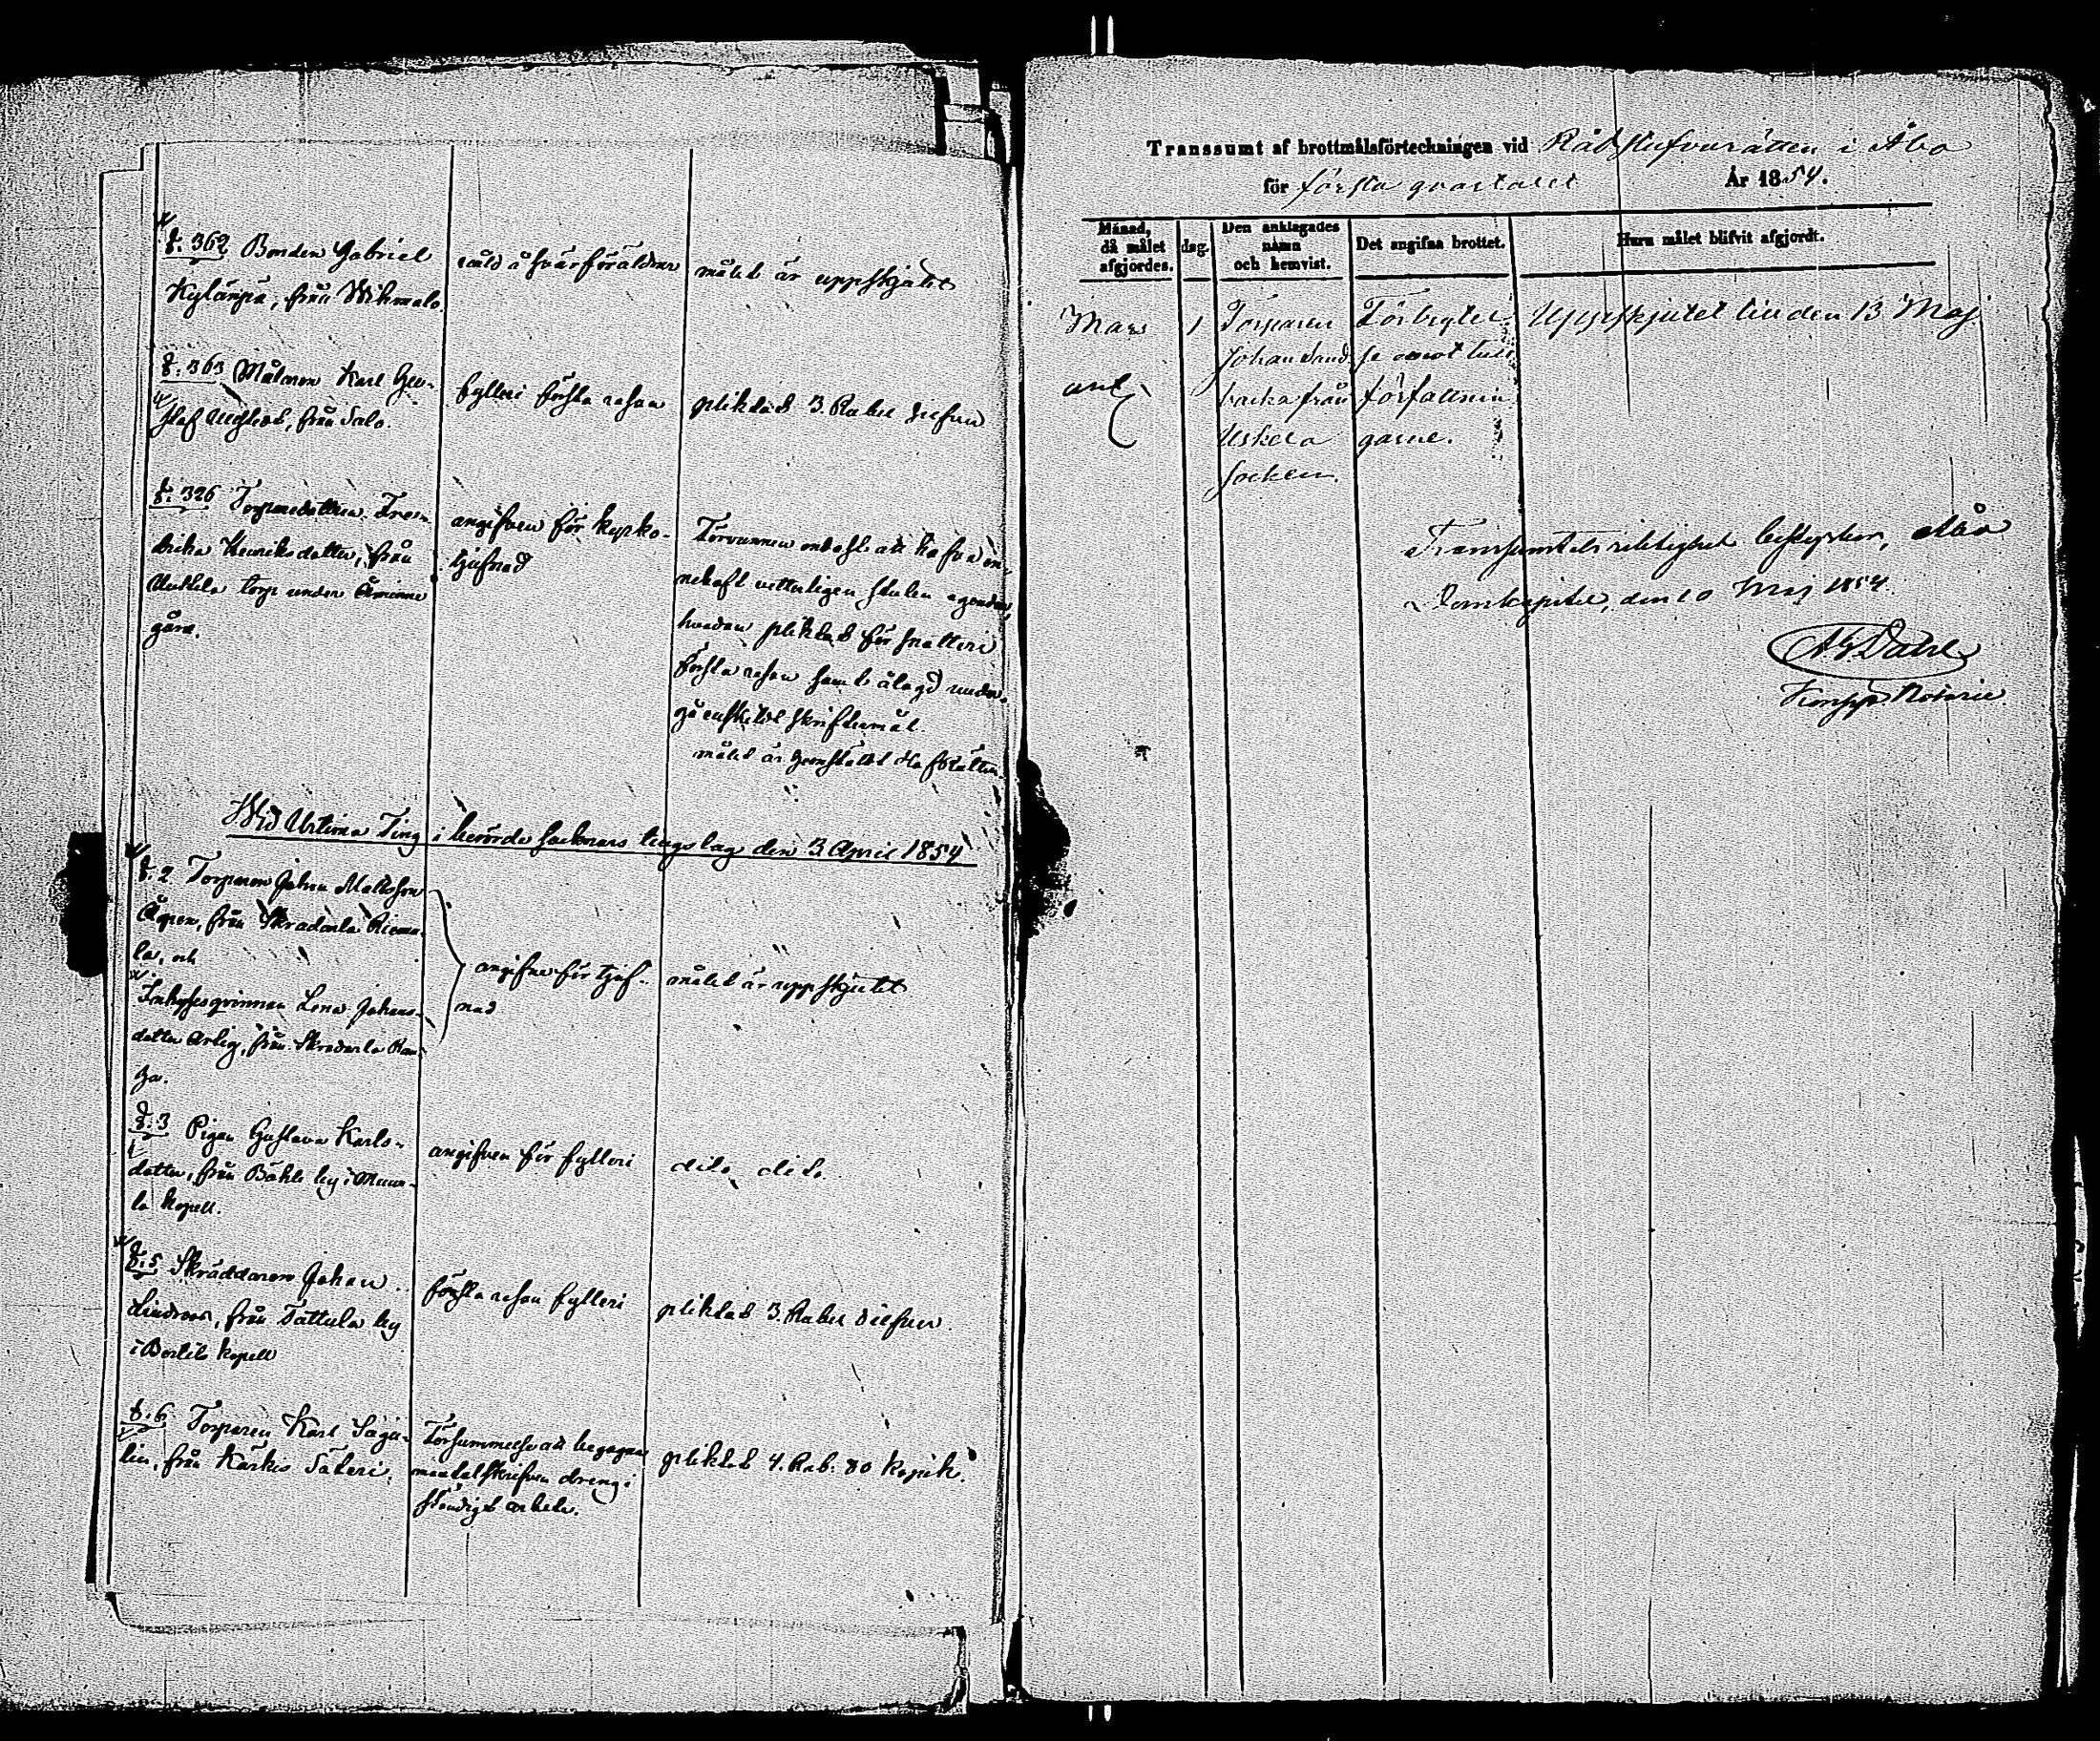 §. 362 Bonden Gabriel
Kylänpä, från Wihmalo.
våld å svärföräldrar
målet är uppskjutit
§. 363 Målaren Karl Gu-
staf, från Salo.
fylleri första resan
pliktad 3. Rubel silfver
§. 326 Torparedottren Fred-
rika Henriksdotter, från
torp under Åminne
gård.
angifven för kyrko-
tjufnad
Förvunnen endast att hafva in-
nehaft vetterligen stulen egendom,
hvadan pliktad för snatteri
första resan samt ålagd under-
gå enskildt skriftermål.
målet är hemstäldt Hofrätten.
Wid Urtima Ting i berörde socknars tingslag den 3 April 1854
§. 2 Torparen Johan Mattsson
från
la, och
Inhysesqvinnan Lena Johans-
dotter från
angifne för tjuf-
nad
målet är uppskjutit
§. 3 Pigan Gustava Karls-
dotter, från by i Muur-
la kapell.
angifven för fylleri
dito dito.
§. 5 Skräddaren Johan
Lindroos, från Tattula by
i Bertils kapell
första resan fylleri
pliktad 3. Rubel silfver.
§. 6 Torparen Karl Sage-
lin, från Kärkis Säteri.
Försummelse att begagna
mantalskrifven dreng i
ständigt arbete.
pliktad 4. Rub: 80 kopek.
Transsumt af brottmålsförteckningen vid Rådstufvurätten i Åbo
för första qvartalet År 1854.
Månad,
då målet
afgjordes.
dag.
Den anklagades
namn
och hemvist.
Det angifna brottet.
Huru målet blifvit afgjordt.
Mars
1
Torparen
Johan Sand-
backa från
Uskela
socken.
Förbrytel-
se emot tull
författnin
garne.
Uppskjutet till den 13 Maj.
Transsumtets riktighet bestyrker, Åbo
Domkapitel, den 10 Maj 1854.
Dahl
Notarie.